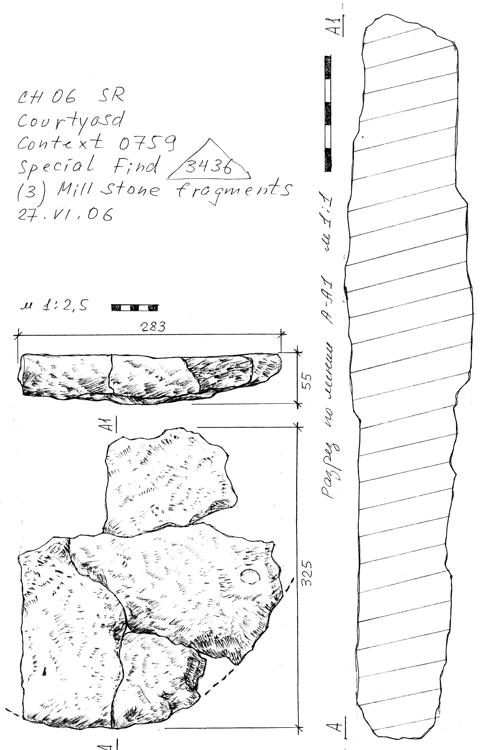 CH 06 SR
Courtyard
Context 0759
Special Find 3436
(3) Mill stone fragments
27.VI.06
м 1:2,5
283
55
А1
325
А
А1
Разрез по линии А-А1 м 1:1
А